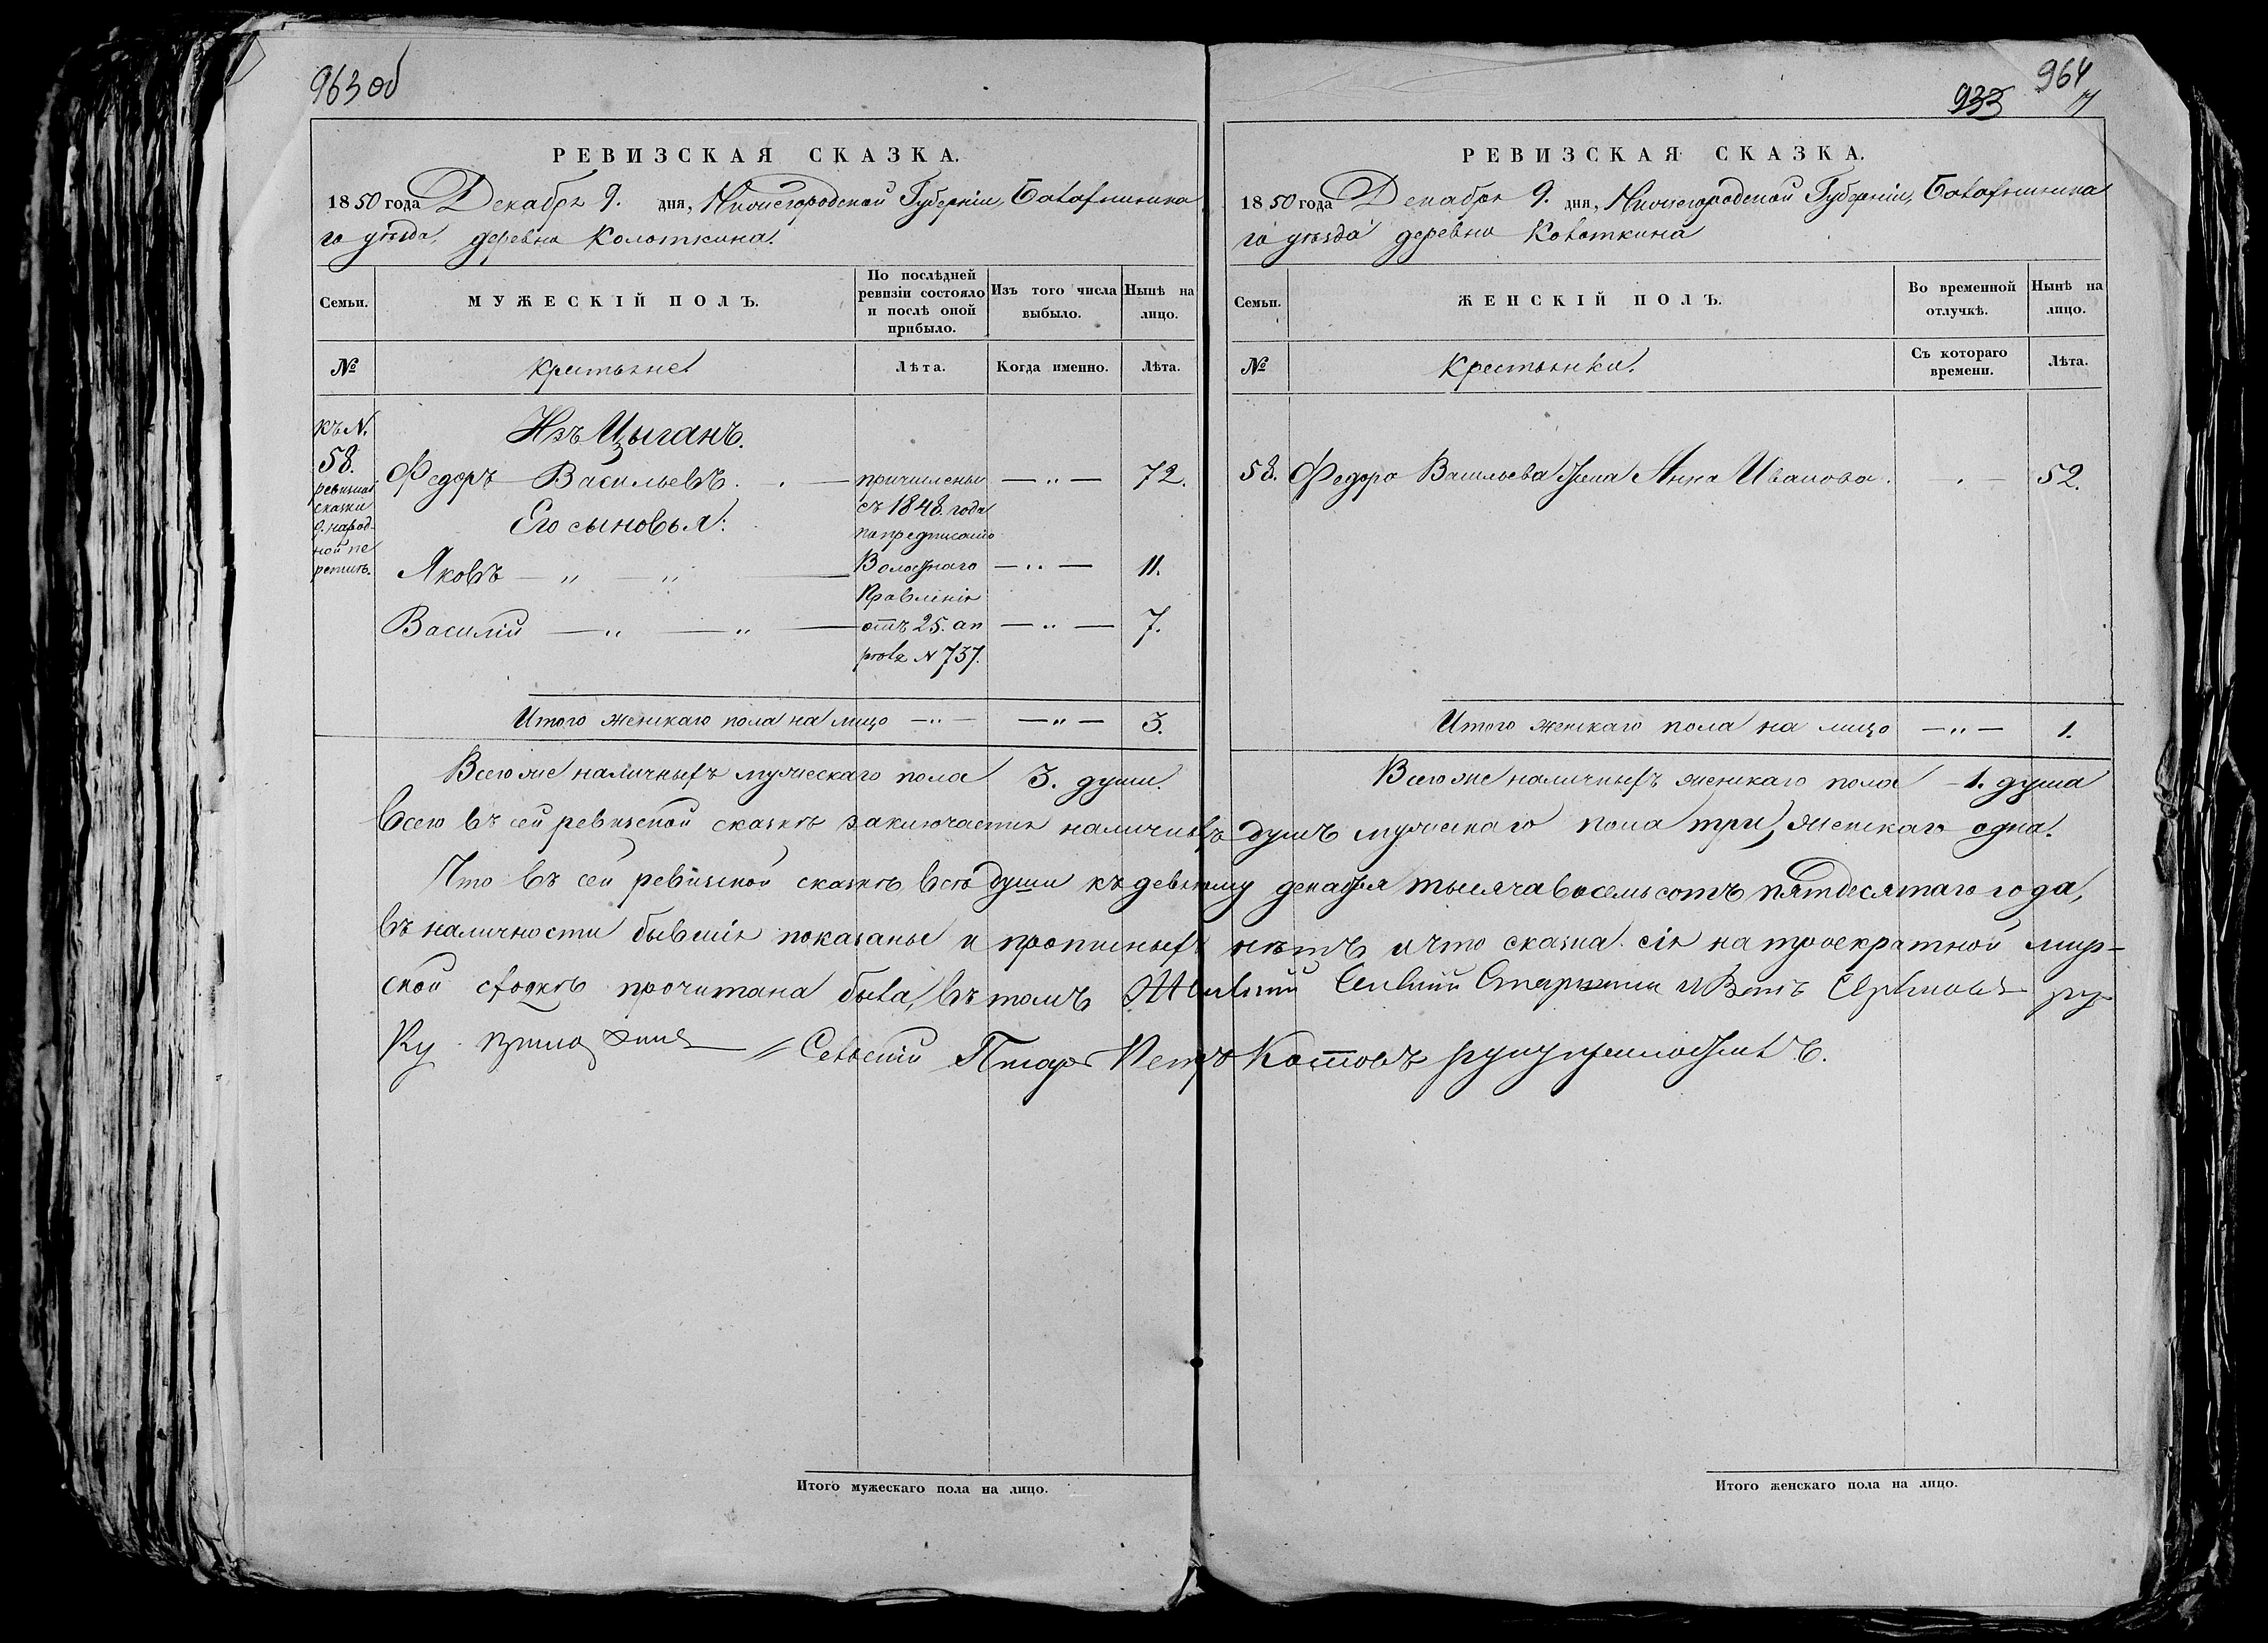 963 об
РЕВИЗСКАЯ СКАЗКА.
1850 года Декабря 9. дня, Нижегородской Губерніи, Балахнинска
го уѣзда, деревни Колоткина.
Семьи.
МУЖЕСКІЙ ПОЛЪ.
По послѣдней
ревизіи состояло
и послѣ оной
прибыло.
Изъ того числа
выбыло.
Нынѣ на
лицо.
№
Крестьяне
Лѣта.
Когда именно.
Лѣта.
Къ N.
58.
ревизкой
сказки
9. народ-
ной пе
реписи.
Изъ Цыганъ.
Федоръ Васильевъ. — причислены — " — 72.
Его сыновья:
съ 1848. года
по предписанію
Яковъ — " — " — Волостнаго — " — 11.
Правленія
Василій — " — " — отъ 25. ап — " — 7.
реля N 737.
Итого женскаго пола на лицо — " — — " — 3.
Всего же наличныхъ мужескаго пола 3. души.
964
933
РЕВИЗСКАЯ СКАЗКА.
1850 года Декабря 9. дня, Нижегородской Губерніи, Балахнинска
го уѣзда деревни Колоткина
Семьи.
ЖЕНСКІЙ ПОЛЪ.
Во временной
отлучкѣ.
Нынѣ на
лицо.
№
Крестьянки.
Съ котораго
времени.
Лѣта.
58. Федора Васильева жена Анна Иванова. — . — 52.
Итого женскаго пола на лицо — " — 1.
Всего же наличныхъ женскаго пола — 1. душа
Всего въ сей ревизской сказкѣ заключается наличныхъ душъ мужескаго пола три, женскаго одна.
Что въ сей ревизской сказкѣ всѣ души къ девятому декабря тысяча восемьсотъ пятдесятаго года,
въ наличности бывшія показаны и прописныхъ нѣтъ и что сказка сія на троекратной мир-
ской сходкѣ прочитана была, въ томъ Сельскій Старшина Иванъ ру
ку приложилъ — Сельскій Писарь Петръ Котовъ руку приложилъ.
Итого мужескаго пола на лицо.
Итого женскаго пола на лицо.